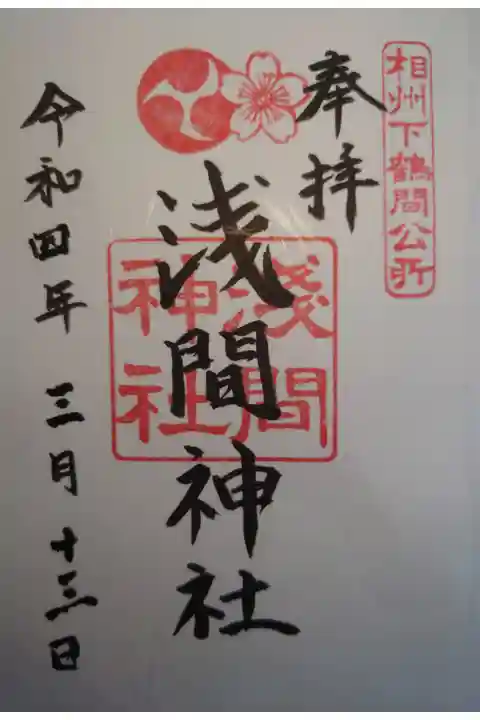 相州下鶴間公所
奉拝
浅間神社
淺間
神社
令和四年 三月十三日